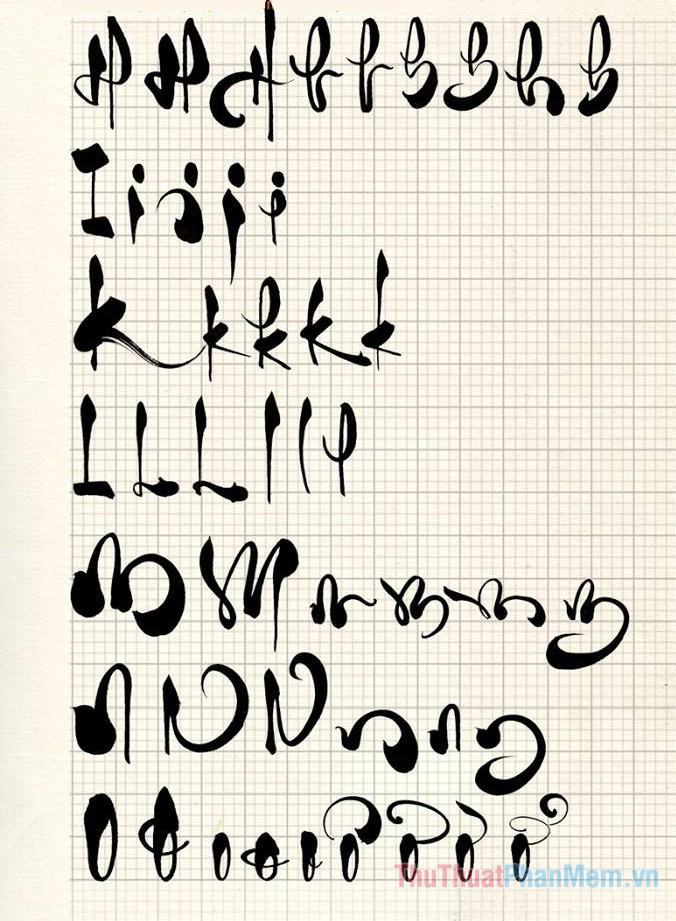 H H H h h h h h h
I i i j i
K k k k k
L L L l l l
M M m m m m m
N N N n n n
O O o o o o o o o
ThuThuatPhanMem.vn